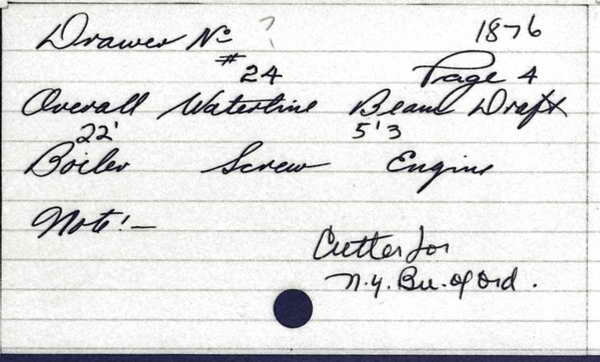 Drawer No ? 1876
#24 Page 4
Overall Waterline Beam Draft
22' 5'3
Boiler Screw Engine
Note:-
Cutter for
N.Y. Bu. of Ord.